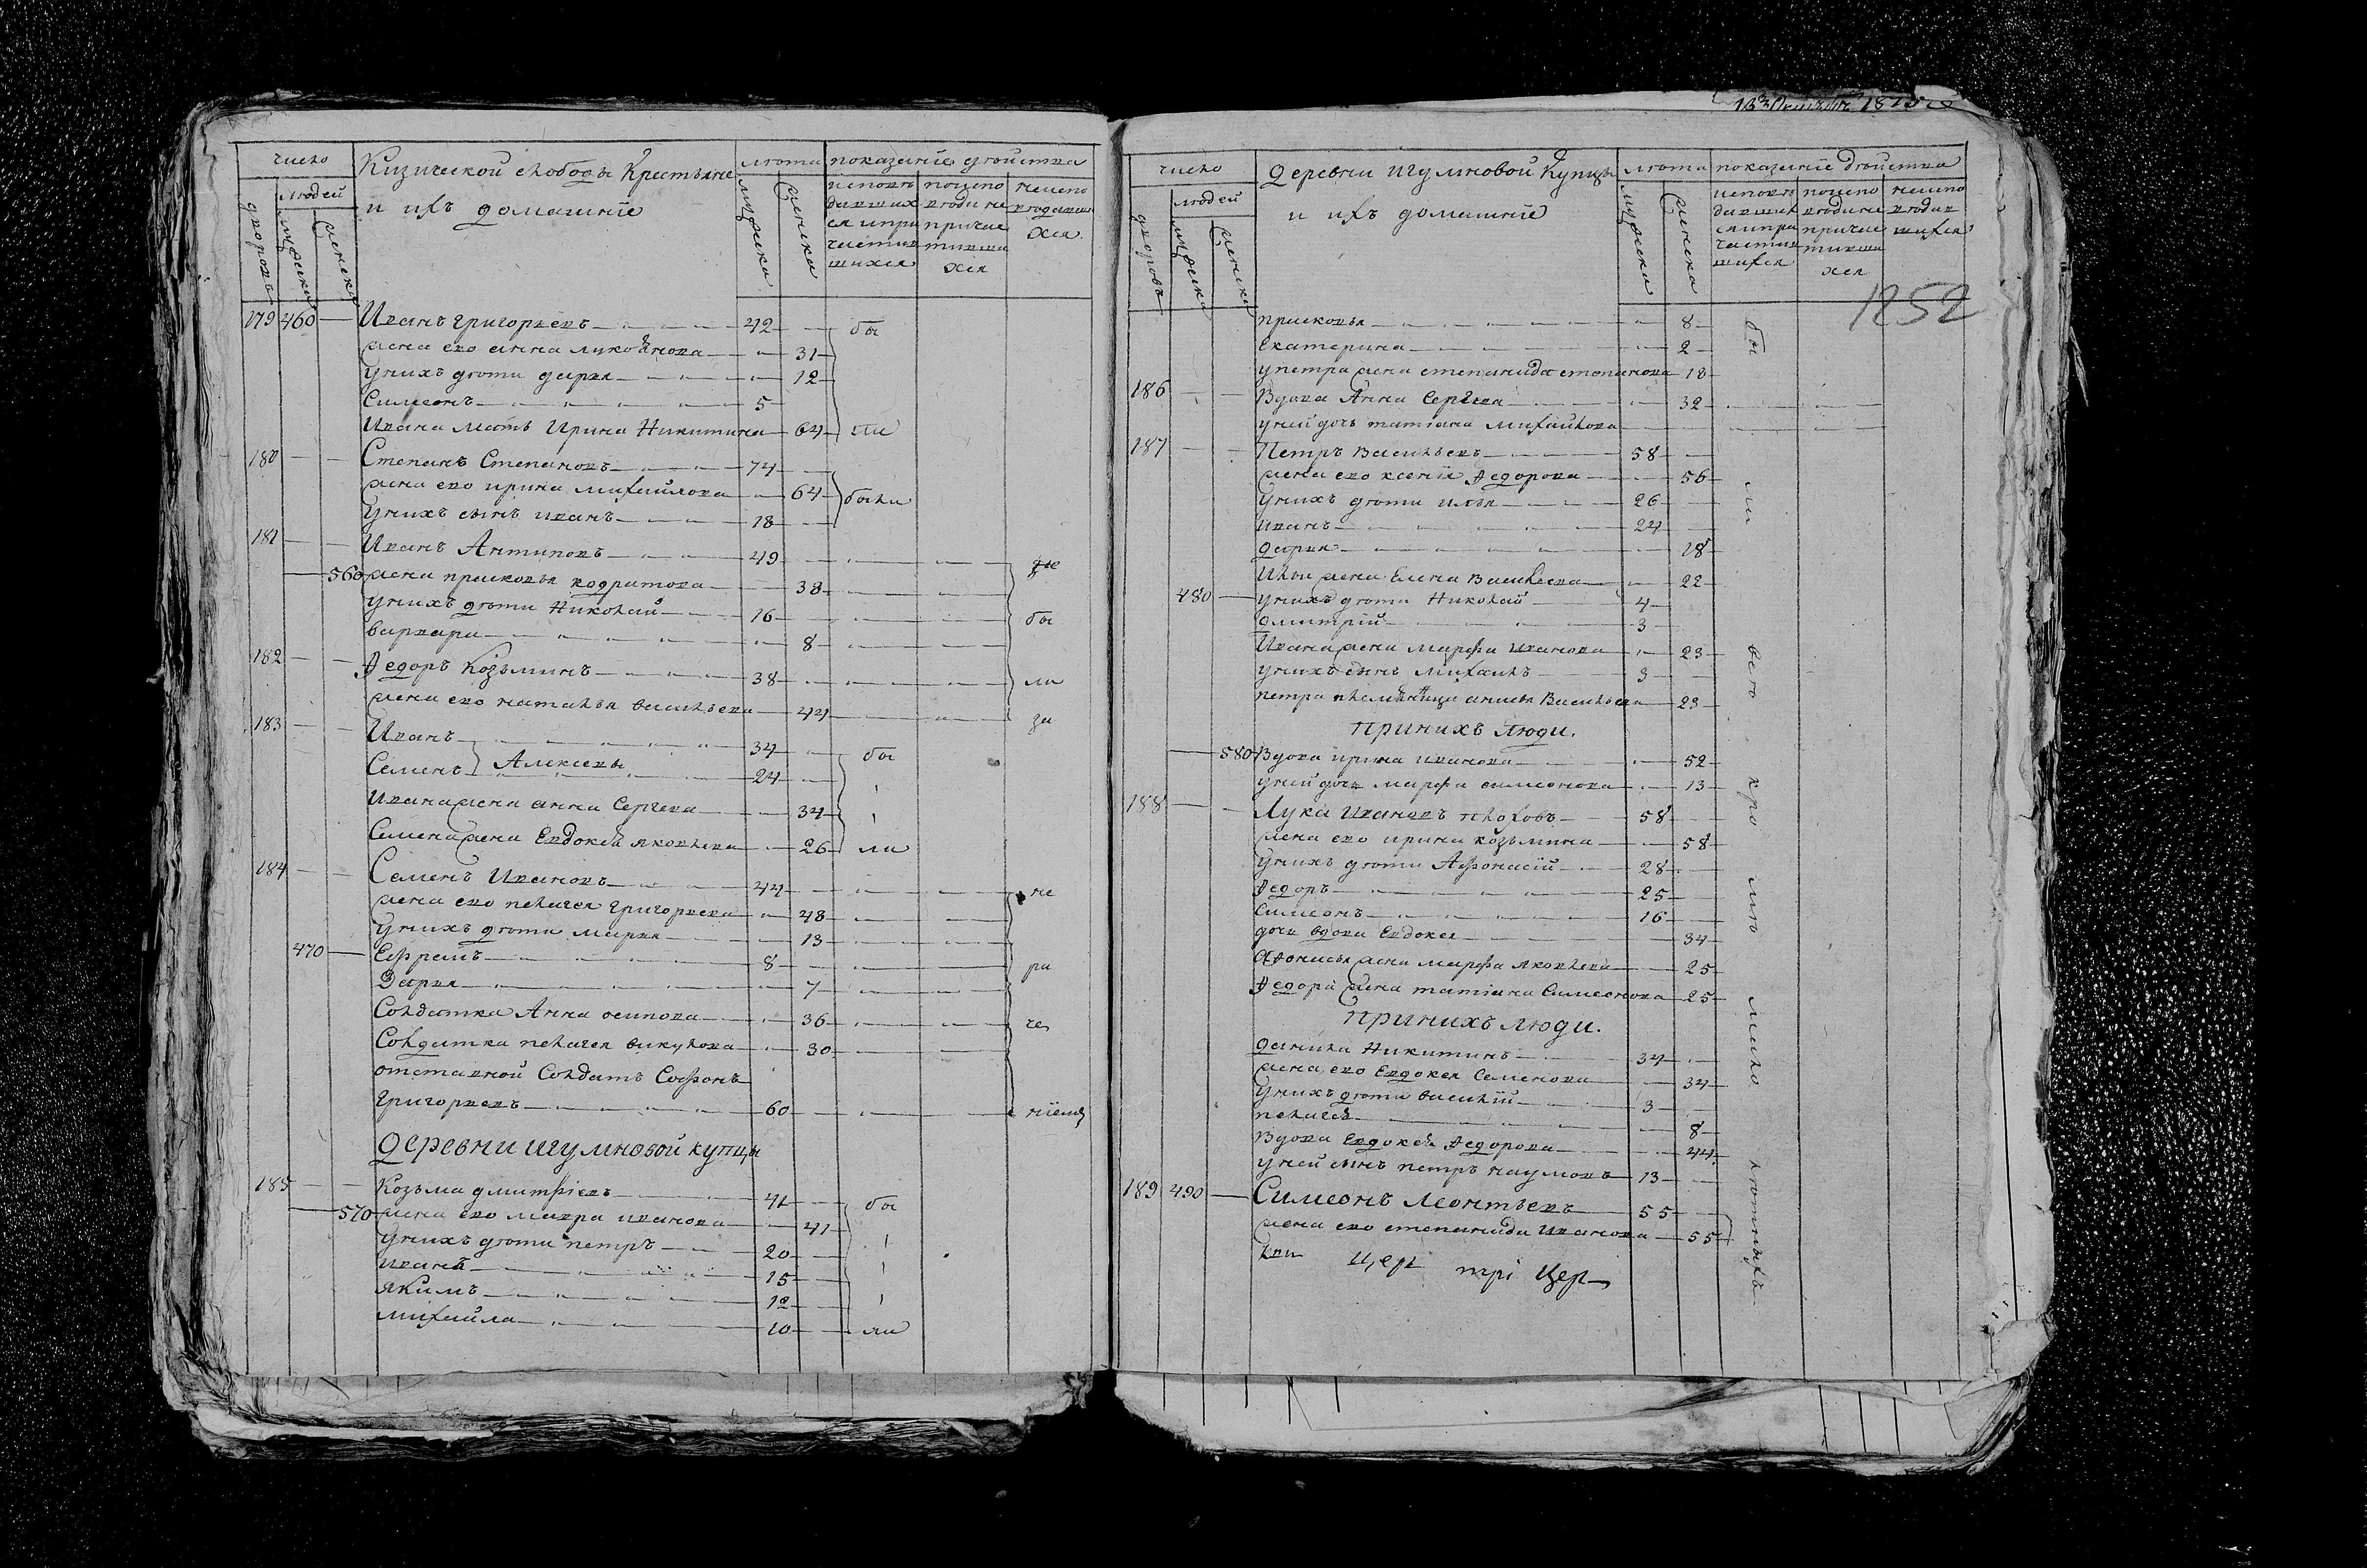 число
Кизической слободы Крестьяне
лѣта
показаніе двойства
людей
и ихъ домашніе
дворовъ
мужска
женска
мужска
женска
исповѣ
дывших
ся и при
частив
шихся
исповѣ
причас
хся
хся
179 460 Иванъ григорьевъ 42 бы
жена ево анна 31
у нихъ дѣти дарья 12
Симеонъ 5
Ивана мать Ирина Никитина 64 ли
180 Степанъ Степановъ 74
жена ево ирина михайлова 64 были
у нихъ сынъ иванъ 18
181 Иванъ Антиповъ 49
560 жена прасковья кодратова 38
у нихъ дѣти Николай 16 бы
варвара 8
182 Ѳедоръ Козьминъ 38 ли
жена ево наталья васильева 44 за
183 Иванъ 34 бы
Семенъ Алексеевы 24
Ивана жена анна Сергеева 34
Семена жена Евдокея яковлева 26 ли
184 Семенъ Ивановъ 44 не
жена ево пелагея григорьева 48
у нихъ дѣти марья 13
470 Ефремъ 8 ра
Дарья 7
Солдатка Анна осипова 36 че
Солдатка пелагея викулова 30
отставной Солдатъ Софонъ
Григорьевъ 60 ніемъ
деревни игумновой купцы
185 Козьма дмитріевъ 41 бы
570 жена ево мавра иванова 41
у нихъ дѣти петръ 20
иванъ 15
якимъ 12
михайла 10 ли
1252
число
деревни игумновой Купцы
лѣта
показаніе двойства
людей
и ихъ домашніе
дворовъ
мужска
женска
мужска
женска
исповѣ
прасковья 8 бы
Екатерина 2
у петра жена степанида степанова 18
186 Вдова Анна Сергеева 32
у ней дочь татіана михайлова
187 Петръ Васильевъ 58
жена ево ксенія Ѳедорова 56 ли
у нихъ дѣти илья 26
иванъ 24
дарья 18
Ильи жена Елена Васильева 22
480 у нихъ дѣти Николай 4
дмитрій 3
Ивана жена марфа иванова 23 всѣ
у нихъ сынъ михаилъ 3
петра племянница анисья Васильева 23
при нихъ люди.
580 Вдова ирина иванова 52
у ней дочь марфа симеонова 13 кро
188 Лука Ивановъ плоховъ 58
жена ево ирина козьмина 58
у нихъ дѣти Афонасій 28 мѣ
Ѳедоръ 25
Симеонъ 16
дочь вдова Евдокея 34
Афонасья жена марфа яковлева 25
Ѳедора жена татіана Симеонова 25 мало
при нихъ люди.
данила Никитинъ 34
жена ево Евдокея Семенова 34
у нихъ дѣти василій 3
пелагея 8
Вдова Евдокея Ѳедорова 44 лѣтныхъ
у ней сынъ петръ наумовъ 13
189 490 Симеонъ Леонтьевъ 55
жена ево степанида Иванова 55
цер трі цер